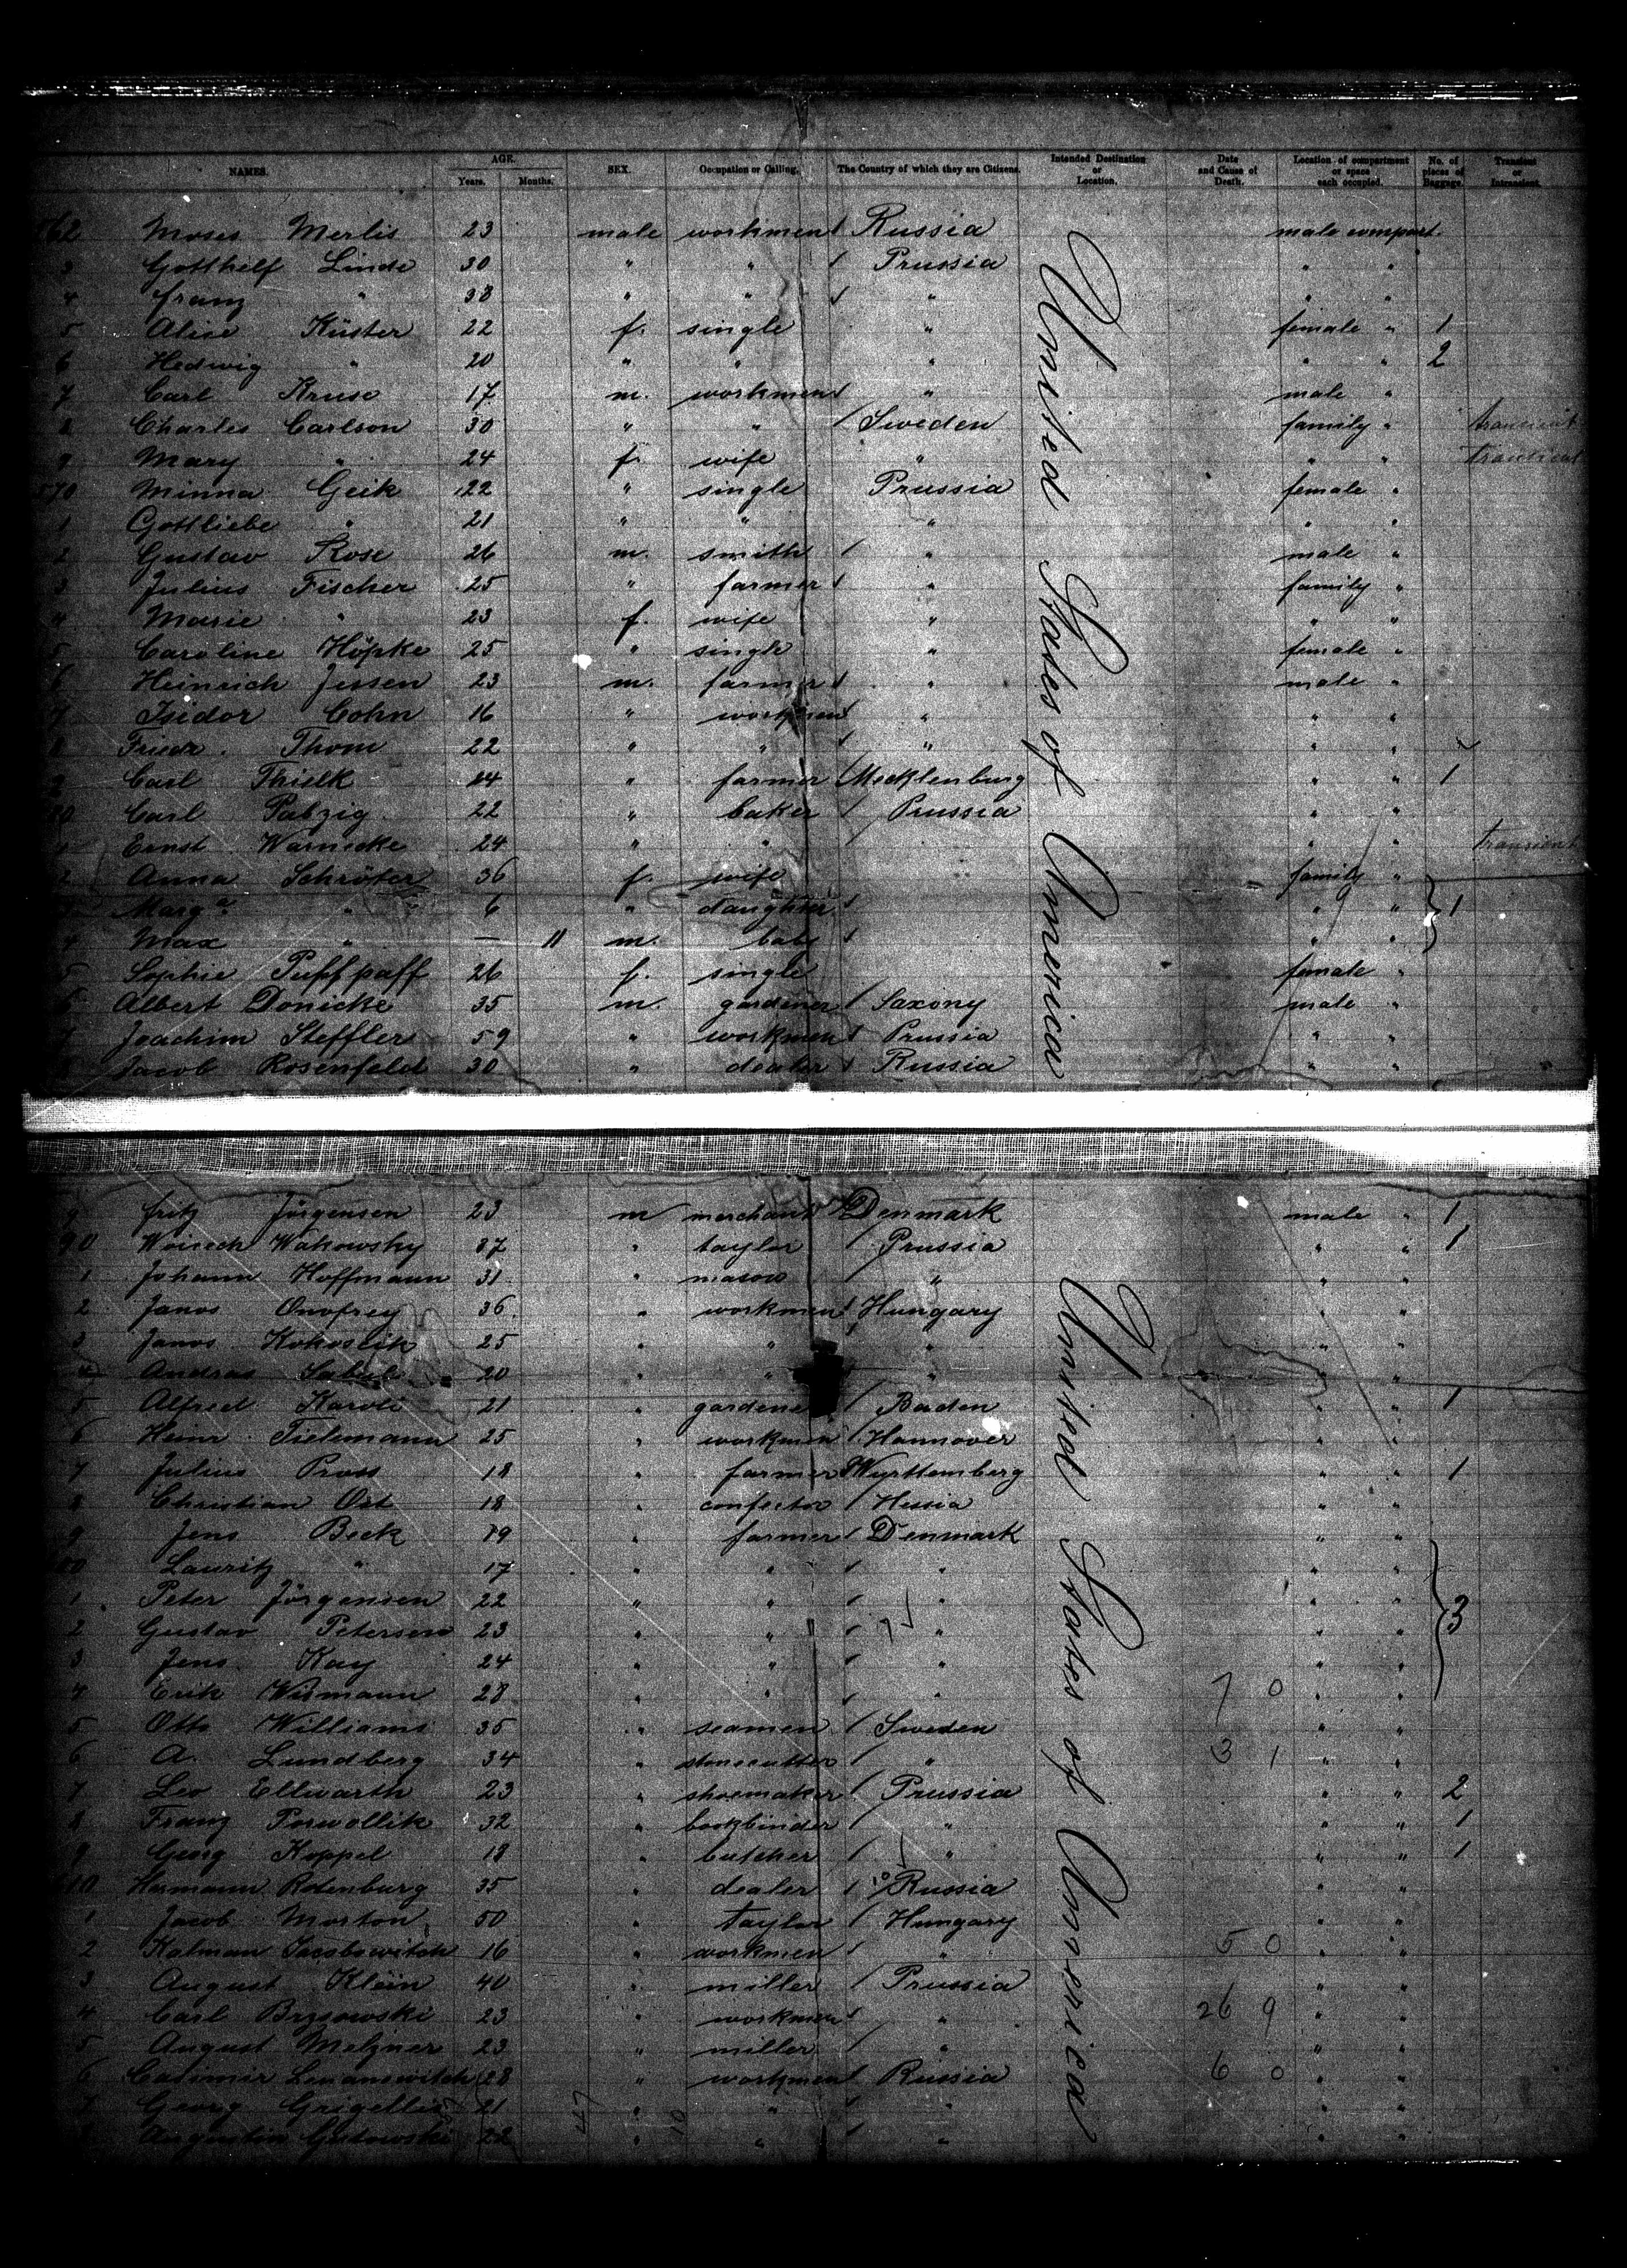 NAMES. AGE. Years. Months. SEX. Occupation or Calling. The Country of which they are Citizens. Intended Destination or Location. Date and Cause of Death. Location of compartment or space each occupied. No. of pieces of Baggage. Transient or Intransient.
United States of America
562 Moses Merlis 23 male workmen Russia male compart.
3 Gotthilf Linde 30 " " Prussia " "
4 Franz " 38 " " " " "
5 Alice Küster 22 f. single " female " 1
6 Hedwig " 20 " " " " " 2
7 Carl Kruse 17 m. workmen " male "
8 Charles Carlson 30 " " Sweden family " transient
9 Mary " 24 f. wife " " " transient
570 Minna Geik 22 " single Prussia female "
1 Gottliebe " 21 " " " " "
2 Gustav Rose 26 m. smith " male "
3 Julius Fischer 25 " farmer " family "
4 Marie " 23 f. wife " " "
5 Caroline Höpke 25 " single " female "
6 Heinrich Jessen 23 m. farmer " male "
7 Isidor Cohn 16 " workmen " " "
8 Friedr. Thom 22 " " " " "
9 Carl Thielk 24 " farmer Mecklenburg " " 1
80 Carl Pabzig 22 " baker Prussia " "
1 Ernst Warnicke 24 " " " " transient
2 Anna Schröter 36 f. wife family "
3 Marga. " 6 " daughter " " 1
4 Max " — 11 m. baby " "
5 Sophie Puffpaff 26 f. single female "
6 Albert Donicke 35 m. gardener Saxony male "
7 Joachim Steffler 59 " workmen Prussia " "
8 Jacob Rosenfeld 30 " dealer Russia " "
United States of America
9 Fritz Jürgensen 23 m merchant Denmark male " 1
90 Woicech Wakowsky 37 " taylor Prussia " " 1
1 Johann Hoffmann 31 " mason " " "
2 Janos Onofrey 36 " workmen Hungary " "
3 Janos Kokoscik 25 " " " " "
4 Andras 20 " " " " "
5 Alfred Karoli 21 " gardener Baden " " 1
6 Heinr. Tielemann 25 " workmen Hannover " "
7 Julius Pross 18 " farmer Wyrttemberg " " 1
8 Christian Ost 18 " confector Hessia " "
9 Jens Beck 19 " farmer Denmark " "
600 Lauritz " 17 " " " " "
1 Peter Jörgensen 22 " " " " "
2 Gustav Petersen 23 " " " " " 3
3 Jens Kay 24 " " " " "
4 Erik Wismann 28 " " " 7 0 " "
5 Otto Williams 35 " seamen Sweden " "
6 A. Lundberg 34 " stonecutter " 3 1 " "
7 Leo Ellwarth 23 " shoemaker Prussia " " 2
8 Franz Porwollik 32 " bookbinder " " " 1
9 Georg Koppel 18 " butcher " " " 1
610 Hermann Rotenburg 35 " dealer Russia " "
1 Jacob Morton 50 " taylor Hungary " "
2 Kalman Jacobowitch 16 " workmen " 5 0 " "
3 August Klein 40 " miller Prussia " "
4 Carl Brzsowski 23 " workmen " 26 9 " "
5 August Melzner 23 " miller " " "
6 Casimir Lewanowitch 28 " workmen Russia 6 0 " "
7 Georg Grigellis 21 47 " 10 " " " "
8 Augustin Gutowski 22 " " " " "